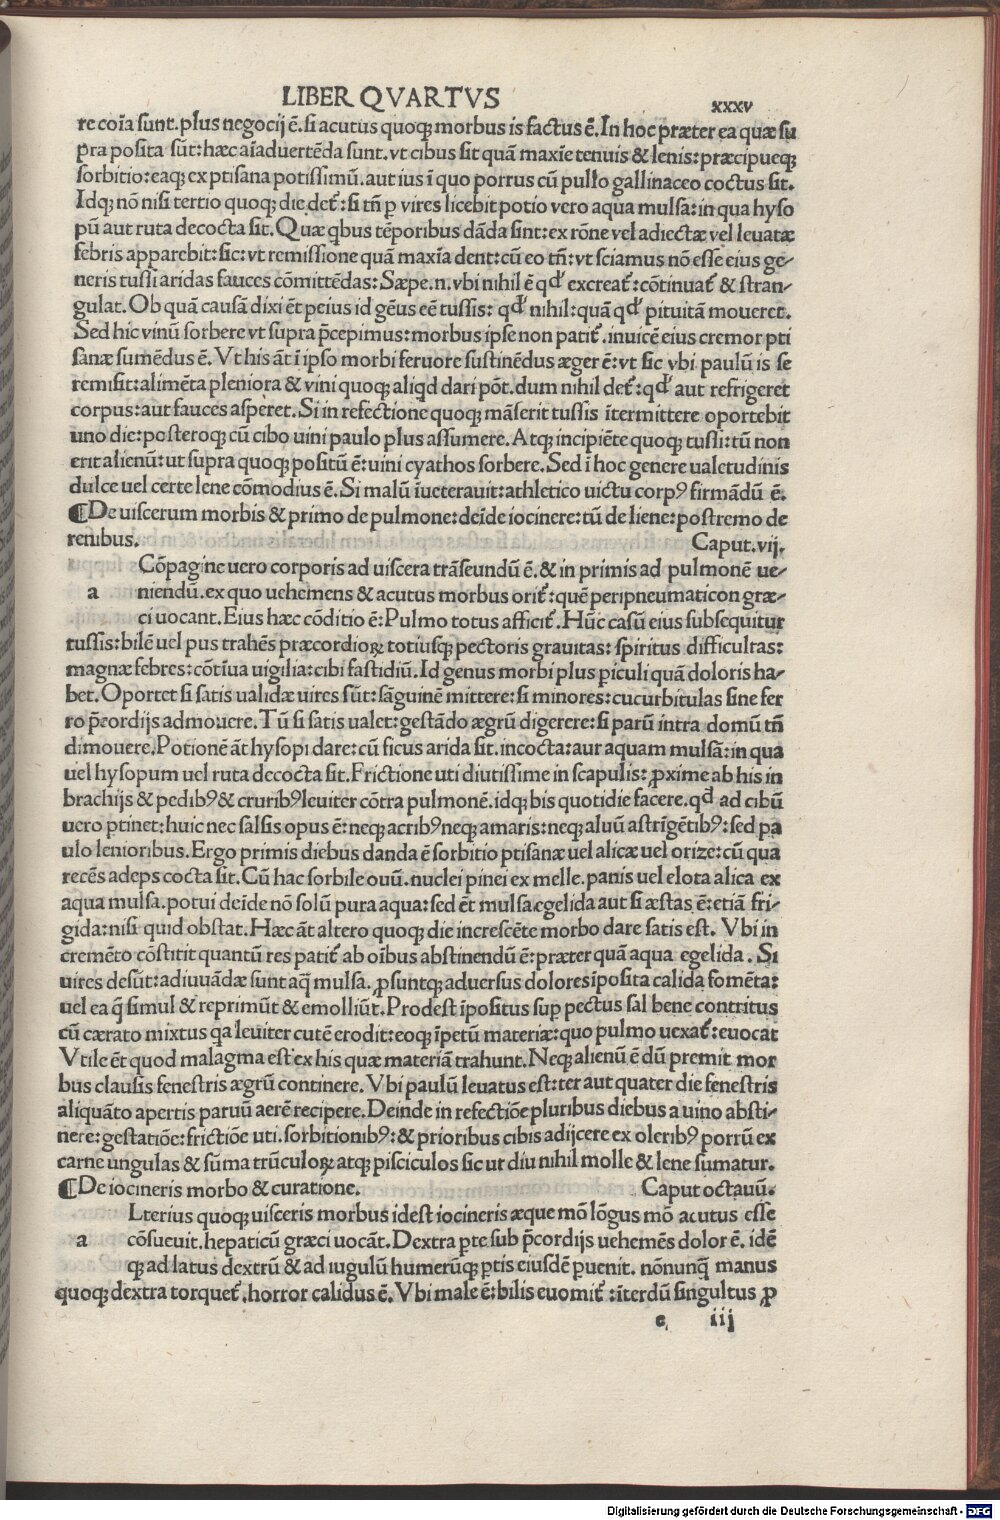 LIBER QVARTVS
xxxv
re coĩa sunt. plus negocij ẽ. si acutus quoqꝫ morbus is factus ẽ. In hoc præter ea quæ su
pra posita sũt: hæc aĩaduertẽda sunt. vt cibus sit quã maxĩe tenuis & lenis: præcipueqꝫ
sorbitio: eaqꝫ ex ptisana potissimũ. aut ius ĩ quo porrus cũ pullo gallinaceo coctus sit.
Idqꝫ nõ nisi tertio quoqꝫ die det᷑: si tñ ꝑ vires licebit potio vero aqua mulsa: in qua hyso
pũ aut ruta decocta sit. Quæ qbus tẽporibus dãda sint: ex rõne vel adiectæ vel leuatæ
febris apparebit: sic: vt remissione quã maxĩa dent: cũ eo tñ: vt sciamus nõ esse eius ge-
neris tussi aridas fauces cõmittẽdas: Sæpe. n. vbi nihil ẽ qđ excreat᷑: cõtinuat᷑ & stran-
gulat. Ob quã causã dixi ẽt peius id gẽus eẽ tussis: qđ nihil: quã qđ pituitã moueret.
Sed hic vinũ sorbere vt supra p̃cepimus: morbus ipse non patit᷑. inuicẽ eius cremor pti
sanæ sumẽdus ẽ. Vt his ãt ĩ ipso morbi feruore sustinẽdus æger ẽ: vt sic vbi paulũ is se
remisit: alimẽta pleniora & vini quoqꝫ aliqd dari põt. dum nihil det᷑: qđ aut refrigeret
corpus: aut fauces asperet. Si in refectione quoqꝫ mãserit tussis ĩtermittere oportebit
uno die: posteroqꝫ cũ cibo uini paulo plus assumere. Atqꝫ incipiẽte quoqꝫ tussi: tũ non
erit alienũ: ut supra quoqꝫ positũ ẽ: uini cyathos sorbere. Sed ĩ hoc genere ualetudinis
dulce uel certe lene cõmodius ẽ. Si malũ ĩueterauit: athletico uictu corpꝰ firmãdũ ẽ.
¶De uiscerum morbis & primo de pulmone: deĩde iocinere: tũ de liene: postremo de
renibus. Caput. vij.
Cõpagine uero corporis ad uiscera trãseundũ ẽ. & in primis ad pulmonẽ ue-
a niendũ. ex quo uehemens & acutus morbus orit᷑: quẽ peripneumaticon græ-
ci uocant. Eius hæc cõditio ẽ: Pulmo totus afficit᷑. Hũc casũ eius subsequitur
tussis: bilẽ uel pus trahẽs præcordioꝝ totiusqꝫ pectoris grauitas: spiritus difficultas:
magnæ febres: cõtĩua uigilia: cibi fastidiũ. Id genus morbi plus ꝑiculi quã doloris ha-
bet. Oportet si satis ualidæ uires sũt: sãguinẽ mittere: si minores: cucurbitulas sine fer
ro p̃cordijs admouere. Tũ si satis ualet: gestãdo ægrũ digerere: si parũ intra domũ tñ
dimouere. Potionẽ ãt hysopi dare: cũ ficus arida sit. incocta: aur aquam mulsã: in qua
uel hysopum uel ruta decocta sit. Frictione uti diutissime in scapulis: ꝓxime ab his in
brachijs & pedibꝰ & cruribꝰ leuiter cõtra pulmonẽ. idqꝫ bis quotidie facere. qđ ad cibũ
uero ꝑtinet: huic nec salsis opus ẽ: neqꝫ acribꝰ neqꝫ amaris: neqꝫ aluũ astrĩgẽtibꝰ: sed pa
ulo lenioribus. Ergo primis diebus danda ẽ sorbitio ptisanæ uel alicæ uel orize: cũ qua
recẽs adeps cocta sit. Cũ hac sorbile ouũ. nuclei pinei ex melle. panis uel elota alica ex
aqua mulsa. potui deĩde nõ solũ pura aqua: sed ẽt mulsa egelida aut si æstas ẽ: etiã fri-
gida: nisi quid obstat. Hæc ãt altero quoqꝫ die increscẽte morbo dare satis est. Vbi in
cremẽto cõstitit quantũ res patit᷑ ab oĩbus abstinendũ ẽ: præter quã aqua egelida. Si
uires desũt: adiuuãdæ sunt aq̃ mulsa. ꝓsuntqꝫ aduersus dolores ĩposita calida fomẽta:
uel ea q̃ simul & reprimũt & emolliũt. Prodest ĩpositus sup pectus sal bene contritus
cũ cærato mixtus qa leuiter cutẽ erodit: eoqꝫ ĩpetũ materiæ: quo pulmo uexat᷑: euocat
Vtile ẽt quod malagma est ex his quæ materiã trahunt. Neqꝫ alienũ ẽ dũ premit mor
bus clausis fenestris ægrũ continere. Vbi paulũ leuatus est: ter aut quater die fenestris
aliquãto apertis paruũ aerẽ recipere. Deinde in refectiõe pluribus diebus a uino absti-
nere: gestatiõe: frictiõe uti. sorbitionibꝰ: & prioribus cibis adijcere ex oleribꝰ porrũ ex
carne ungulas & sũma trũculoꝝ atqꝫ pisciculos sic ut diu nihil molle & lene sumatur.
¶De iocineris morbo & curatione. Caput octauũ.
Lterius quoqꝫ uisceris morbus idest iocineris æque mõ lõgus mõ acutus esse
a cõsueuit. hepaticũ græci uocãt. Dextra ꝑte sub p̃cordijs uehemẽs dolor ẽ. idẽ
qꝫ ad latus dextrũ & ad iugulũ humerũqꝫ ꝑtis eiusdẽ ꝑuenit. nõnunq̃ manus
quoqꝫ dextra torquet᷑. horror calidus ẽ. Vbi male ẽ: bilis euomit᷑: ĩterdũ singultus ꝓ
e iij
Digitalisierung gefördert durch die Deutsche Forschungsgemeinschaft - DFG